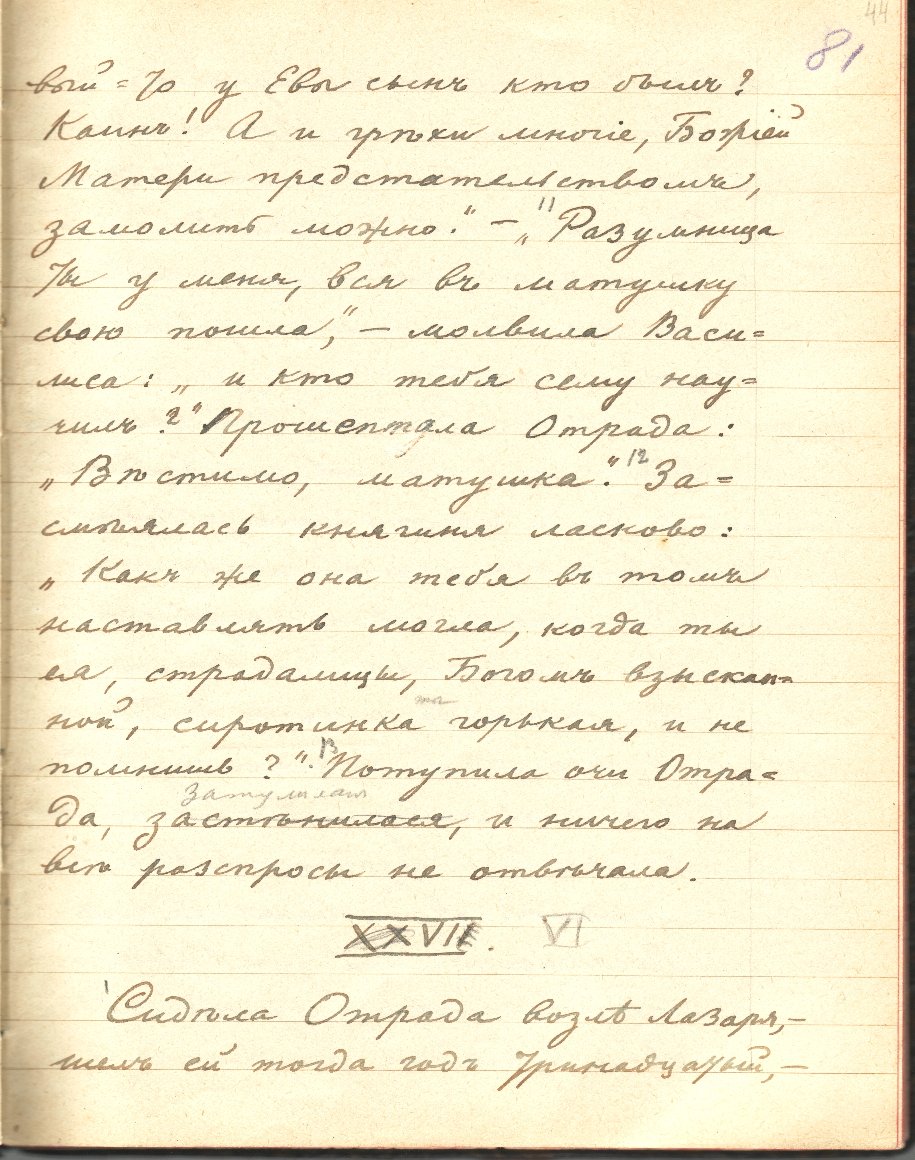 44
81
вый=то у Евы сынъ кто былъ?
Каинъ! А и грѣхи многіе, Божіей
Матери предстательствомъ,
замолить можно." — 11 „Разумница
ты у меня, вся въ матушку
свою пошла," — молвила Васи=
лиса: „и кто тебя сему нау=
чилъ?" Прошептала Отрада:
„Вѣстимо, матушка." 12 За=
смѣялась княгиня ласково:
„Какъ же она тебя въ томъ
наставлять могла, когда ты
ея, страдалицы, Богомъ взыскан=
ной, сиротинка горькая, и не
помнишь?" 13 Потупила очи Отра=
затулилася
да, застѣнилася, и ничего на
всѣ разспросы не отвѣчала.
XXVII. VI
Сидѣла Отрада возлѣ Лазаря,—
шелъ ей тогда годъ тринадцатый,—